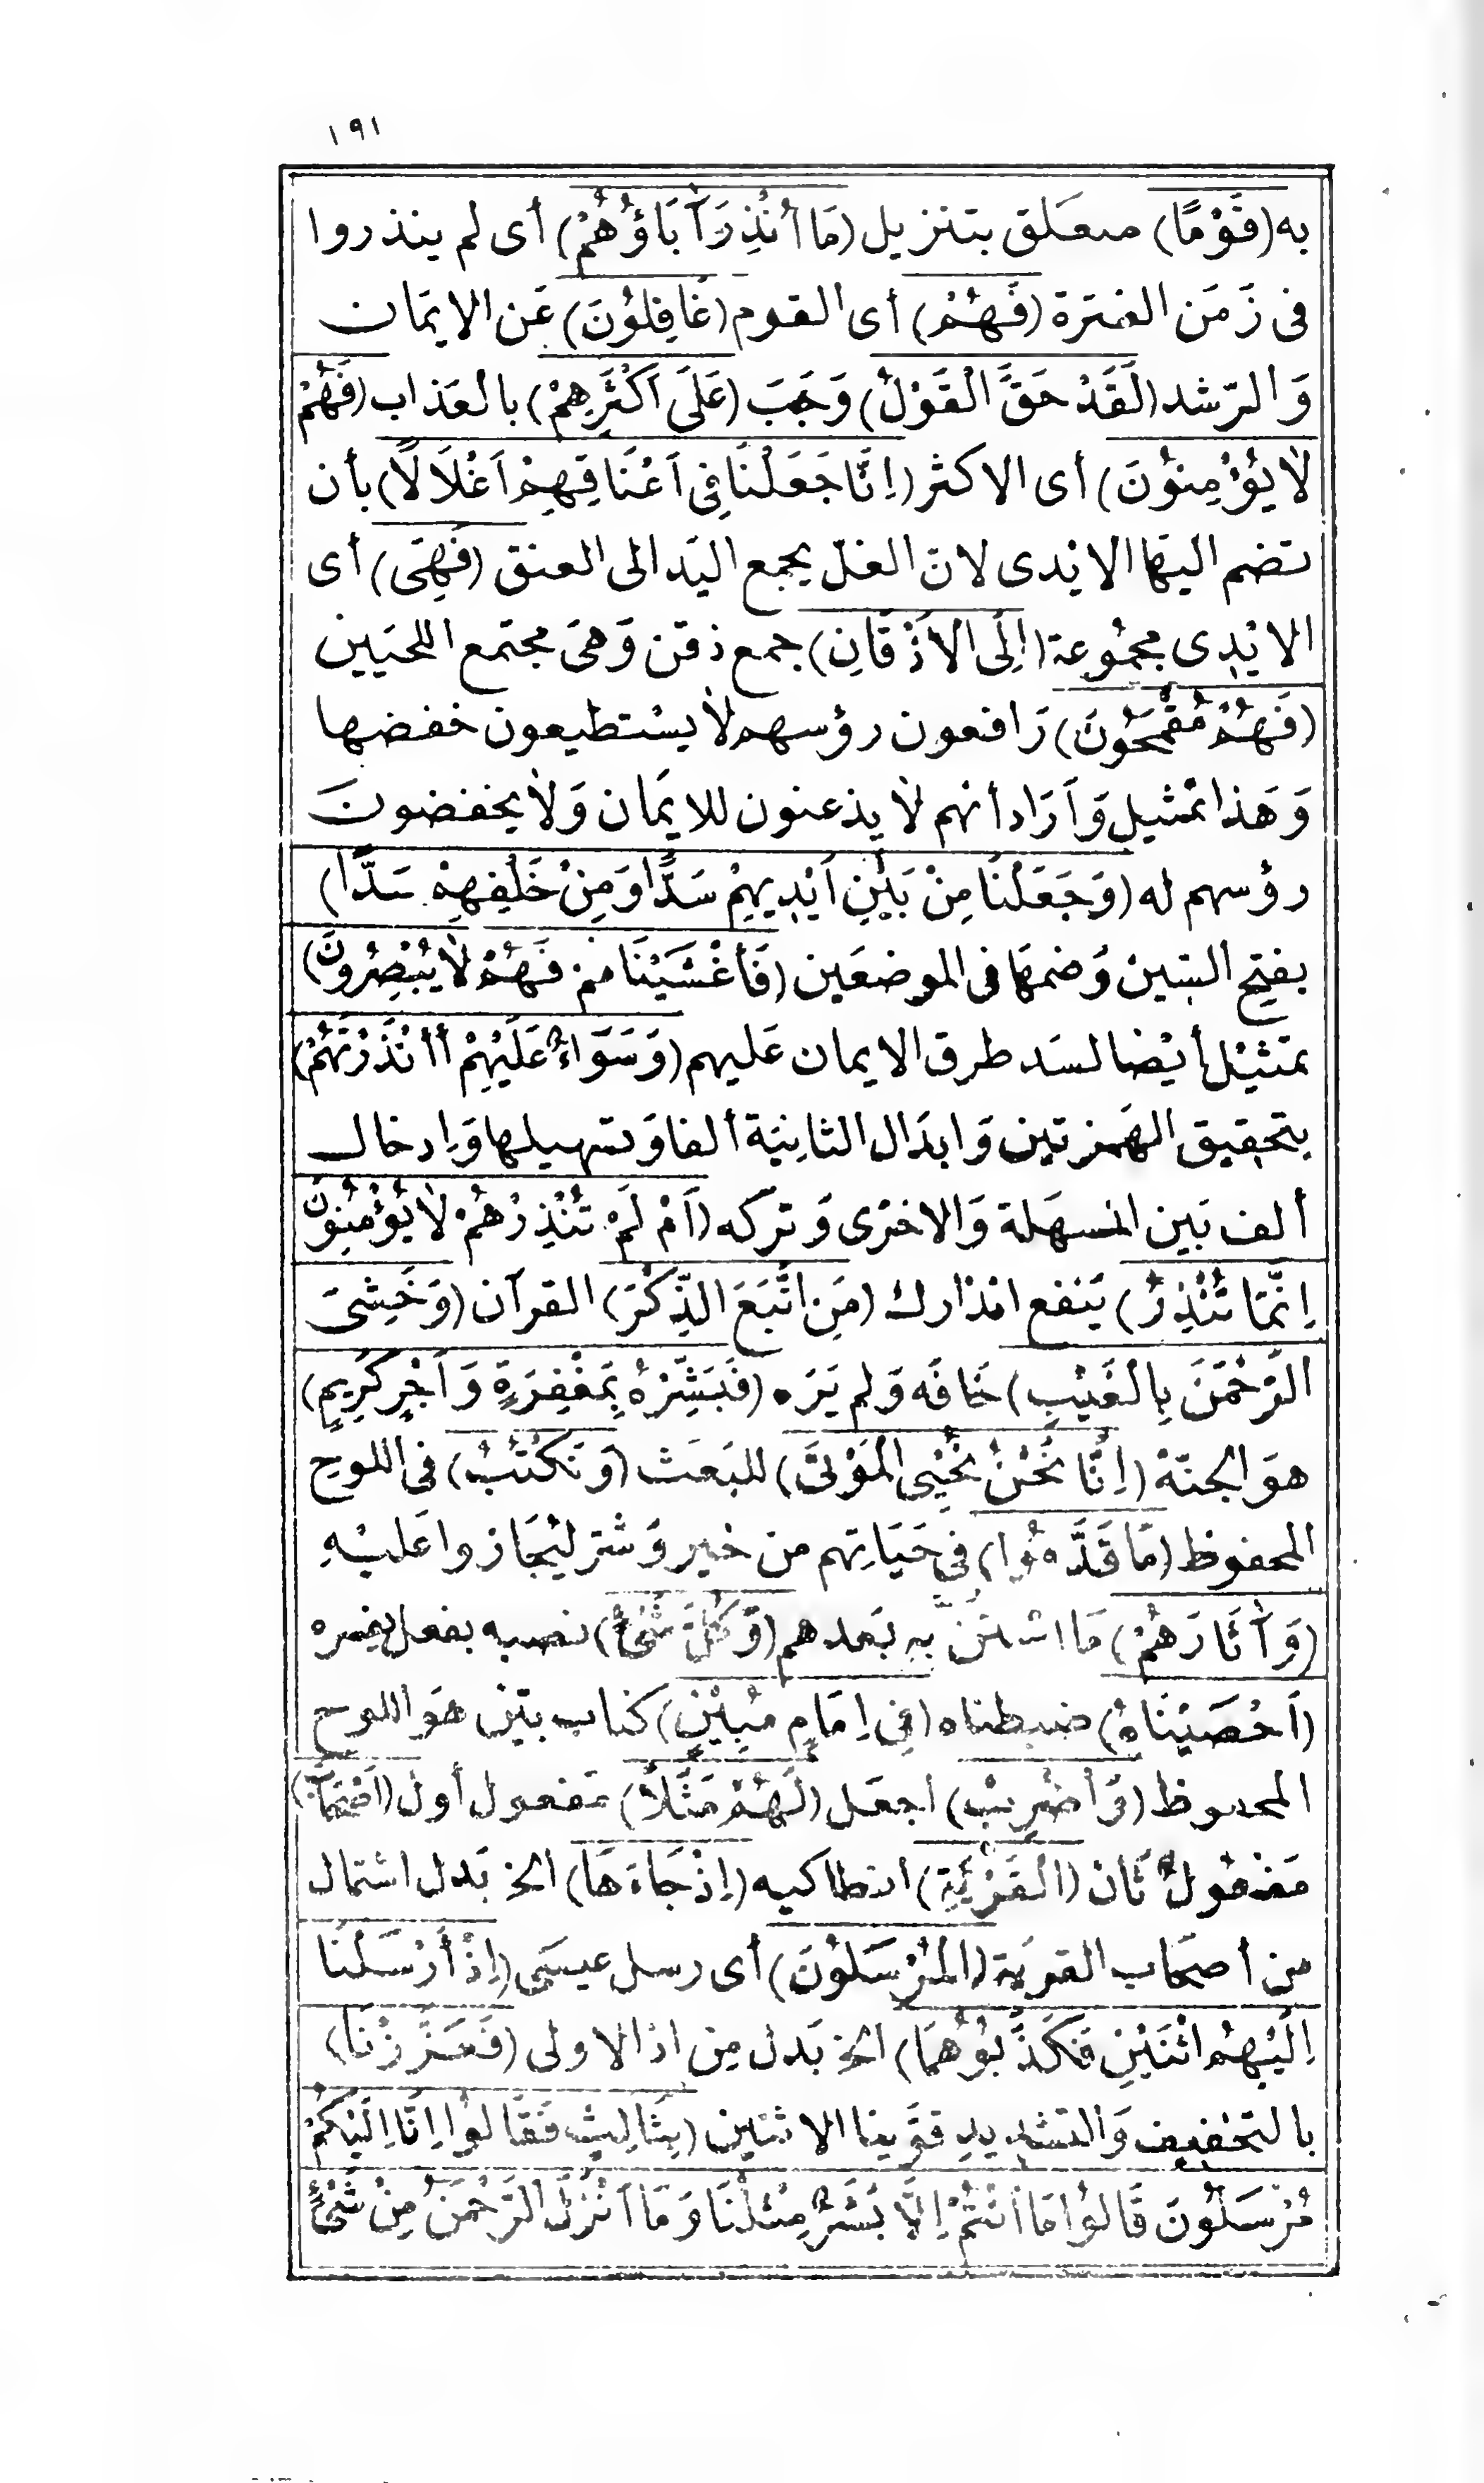 ١٩١
به (قَوْمًا) متعَلق بتنزيل (مَا أُنْذِرَ آٰبَاؤُهُمْ) أى لم ينذروا
فى زَمَن الفترة (فَهُمْ) أى القوم (غَافِلُوْنَ) عَن الايمَان
وَالرّشد (لَقَدْ حَقَّ الْقَوْلُ) وَجَبَ (عَلَى اَكْثَرِهِمْ) بالعَذاب (فَهُمْ
لاٰ يُؤْمِنُوْنَ) أى الاكثر (اِنَّا جَعَلْنَا فِى اَعْنَاقِهِمْ اَغْلَالاً) بأن
تضم اليهَا الايْدى لان الغلّ يجمع اليَد الى العنق (فَهِىَ) أى
الايْدِى مجمُوعة (اِلَى الاَذْقَانِ) جمع ذقن وَهىَ مجتمع اللحيَين
(فَهُمْ مُقْمَحُوْنَ) رَافعون رؤسهم لاٰ يسْتطيعون خفضها
وَهَذا تمثيل وَاَرَاد أنهم لاٰ يذعنون للايمَان وَلاٰ يخفضونَ
رؤسهم له (وَجَعَلْنَا مِنْ بَيْنِ اَيْدِيهِمْ سَدًّا وَمِنْ خَلْفِهِمْ سَدًّا)
بفتح السّين وَضمهَا فى الموضعَين (فَأَغْشَيْنَاهُمْ فَهُمْ لاٰ يُبْصِرُونَ)
تمثيْل أيْضا لسَد طرق الايمان عَليهم (وَسَوَاءٌ عَلَيْهِمْ أَأَنْذَرْتَهُمْ)
بتحقيق الهَمزتين وَابدَال الثانِيَة ألفا وَتسهيلها وَاِدخال
ألف بَين المسهَلة وَالاخرَى وَتركه (اَمْ لَمْ تُنْذِرْهُمْ لاٰ يُؤْمِنُونَ
اِنَّمَا تُنْذِرُ) يَنفع انذارك (مَنِ اتَّبَعَ الذِّكْرَ) القرآن (وَخَشِىَ
الرَّحْمَنَ بِالْغَيْبِ) خَافَه وَلم يَرَه (فَبَشِّرْهُ بِمَغْفِرَةٍ وَاَجْرٍ كَرِيمٍ)
هوَ الجنّة (اِنَّا نَحْنُ نُحْيِى الْمَوْتىَ) للبَعَث (وَنَكْتُبُ) فى اللوح
المحفوظ (مَا قَدَّمُوا) فى حَيَاتِهم من خير وَشر ليُجَازوا عَليْهِ
(وَآٰثَارَهُمْ) مَا استنَّ بهِ بَعدهم (وَكُلَّ شَىْءٍ) نصبه بفعل يفسره
(اَحْصَيْنَاهُ) ضبطناه (فِى اِمَامٍ مُبِيْنٍ) كتاب بيّن هوَ اللوح
المحفوظ (وَاضْرِبْ) اجعَل (لَهُمْ مَثَلاً) مَفعول أول (اَصْحَابَ)
مَفعُولٌ ثَان (الْقَرْيَةِ) انطاكيه (اِذْ جَاءَهَا) الخ بَدل اشتمال
من أصحَاب القريَة (الْمُرْسَلُوْنَ) أى رسل عيسَى (اِذْ أَرْسَلْنَا
اِلَيْهِمُ اثْنَيْنِ فَكَذَّبُوْهُمَا) الخ بَدل مِن اذ الاولى (فَعَزَّزْنَا)
بالتخفيف وَالتشديدِ قوَّينا الاثنين (بِثَالِثٍ فَقَالُوا اِنَّا اِلَيْكُمْ
مُرْسَلُوْنَ قَالُوْا مَا أَنْتُمْ اِلاَّ بَشَرٌ مِثْلُنَا وَمَا اَنْزَلَ الرَّحْمَنُ مِنْ شَىْءٍ